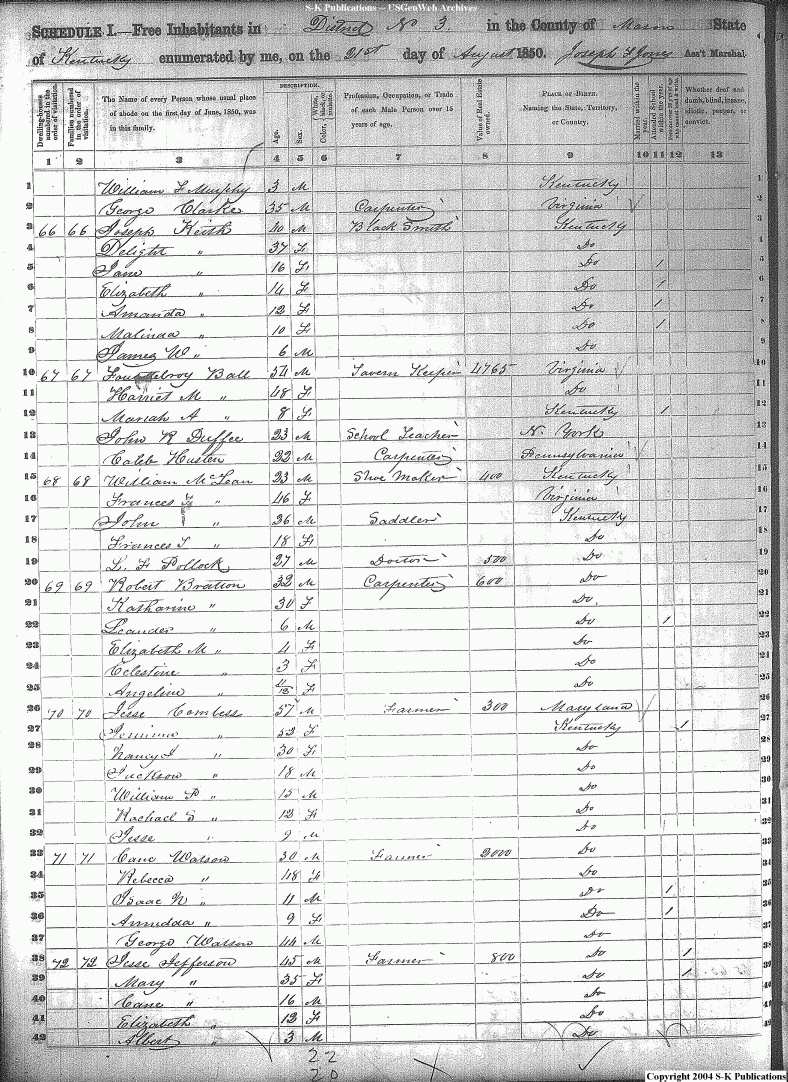 S-K Publications – USGenWeb Archives
SCHEDULE I.—Free Inhabitants in District No 3. in the County of Mason State
of Kentucky enumerated by me, on the 21st day of August 1850. Joseph F Jones Ass't Marshal.
Dwelling-houses numbered in the order of visitation.
Families numbered in the order of visitation.
The Name of every Person whose usual place of abode on the first day of June, 1850, was in this family.
DESCRIPTION.
Age.
Sex.
Color, White, black, or mulatto.
Profession, Occupation, or Trade of each Male Person over 15 years of age.
Value of Real Estate owned.
PLACE OF BIRTH. Naming the State, Territory, or Country.
Married within the year.
Attended School within the year.
Whether deaf and dumb, blind, insane, idiotic, pauper, or convict.
1 2 3 4 5 6 7 8 9 10 11 12 13
1 William F Murphy 3 M Kentucky 1
2 George Clarke 35 M Carpenter Virginia 2
3 66 66 Joseph Keith 40 M Black Smith Kentucky 3
4 Delight " 37 F Do 4
5 Jane " 16 F Do 1 5
6 Elizabeth " 14 F Do 1 6
7 Amanda " 12 F Do 1 7
8 Malinda " 10 F Do 1 8
9 James W " 6 M Do 9
10 67 67 Ball 54 M Tavern Keeper 4765 Virginia 10
11 Harriet M " 48 F Do 11
12 Mariah A " 8 F Kentucky 1 12
13 John R Duffee 23 M School Teacher N. York 13
14 Caleb Husten 22 M Carpenter Pennsylvania 14
15 68 68 William McLean 23 M Shoe Maker 400 Kentucky 15
16 Frances " 46 F Virginia 16
17 John " 26 M Saddler Kentucky 17
18 Frances T " 18 F Do 18
19 L. F Pollock 27 M Doctor 500 Do 19
20 69 69 Robert Bratton 32 M Carpenter 600 Do 20
21 Katharine " 30 F Do. 21
22 Leander " 6 M Do 1 22
23 Elizabeth M " 4 F Do 23
24 Celestine " 3 F Do
25 Angeline " 11/12 F Do
26 70 70 Jesse Combess 57 M Farmer 300 Maryland 26
27 Jemima " 53 F Kentucky 1 27
28 Nancy J " 30 F Do 28
29 Jackson " 18 M Do 29
30 William P " 15 M Do 30
31 Rachael S " 12 F Do 31
32 Jesse " 9 M Do 32
33 71 71 Cane Watson 30 M Farmer 2000 Do 33
34 Rebecca " 48 F Do 34
35 Isaac N " 11 M Do 1 35
36 " 9 F Do 1 36
37 George Watson 44 M Do 37
38 72 72 Jesse Jefferson 45 M Farmer 800 Do 1 38
39 Mary " 35 F Do 1 39
40 Cane " 16 M Do 40
41 Elizabeth " 12 F Do 41
42 Albert " 3 M Do 42
22
20
Copyright 2004 S-K Publications